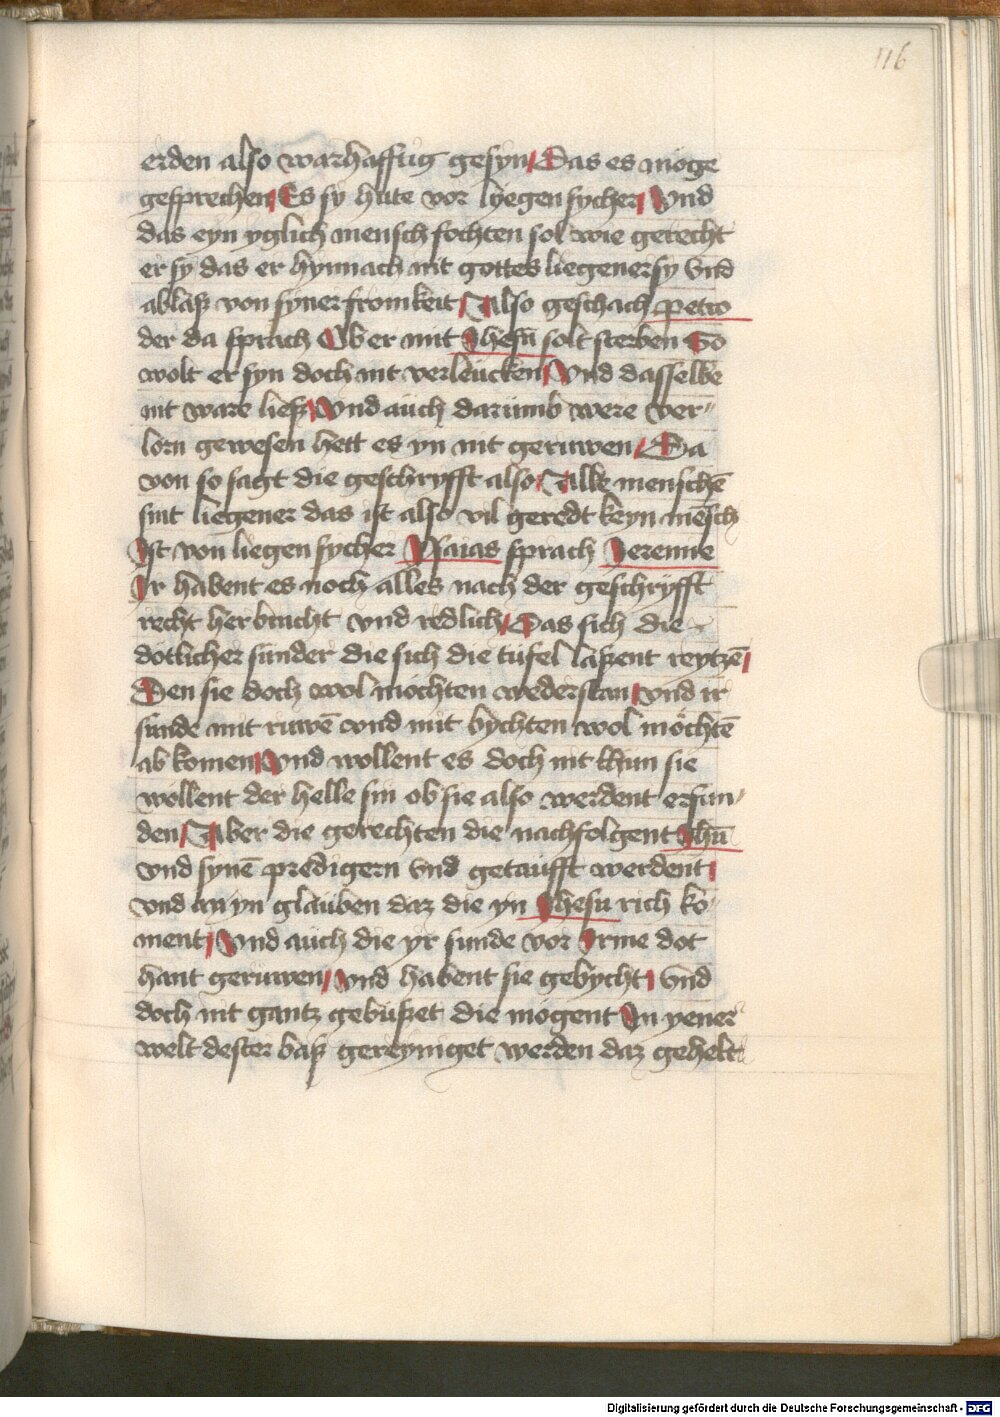 116
erden also warhafftig gesyn / Das es moge
gesprechen / Es sy hute vor lyegen sycher / Vnd
das eyn yglich mensch fochten sol wie gerecht
er sy das er hynnach nit gottes liegener sy Vnd
ablasz von syner fromkeit / Also geschach petro
der da sprach Ob er mit Jhesu solt sterben So
wolt er syn doch nit verleücken / Vnd dasselbe
nit ware liesz / Vnd auch darumb were ver=
lorn gewesen hett es yn nit geruwen / Da
von so sagt die geschryfft also / Alle menschē
sint liegener das ist also vil geredt keyn mēsch
Ist von liegen sycher Ysaias sprach Jeremie
Ir habent es noch alles nach der geschryfft
recht her bracht vnd redlich / Das sich die
dotlicher sunder die sich die tufel laszent reytzē /
Den sie doch wol mochten wederstan / vnd ir
sunde mit ruwē vnd mit bychten wol mochtē
ab komen / Vnd wollent es doch nit thun sie
wollent der helle sin ob sie also werdent erfun=
den / Aber die gerechten die nachfolgent Jhū
vnd synē predigern Vnd getaufft werdent /
vnd an yn glauben daz die yn Jhesu rich ko=
ment / Vnd auch die yr sunde vor Irme dot
hant geruwen / vnd habent sie gebycht / Vnd
doch nit gantz gebuszet die mogent In yener
welt dester basz gereyniget werden daz gehelt
Digitalisierung gefördert durch die Deutsche Forschungsgemeinschaft - DFG